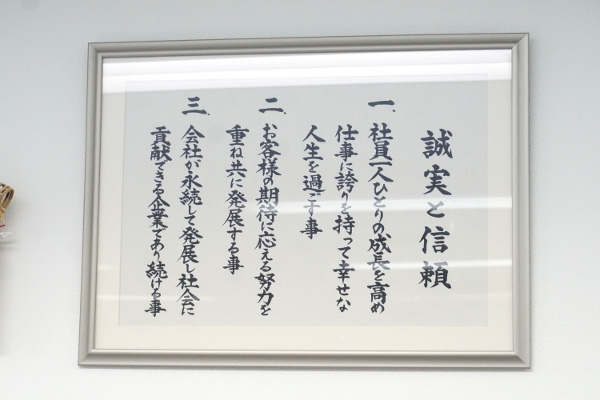 誠実と信頼
一、社員一人ひとりの成長を高め
仕事に誇りを持って幸せな
人生を過ごす事
二、お客様の期待に応える努力を
重ね共に発展する事
三、会社が永続して発展し社会に
貢献できる企業であり続ける事